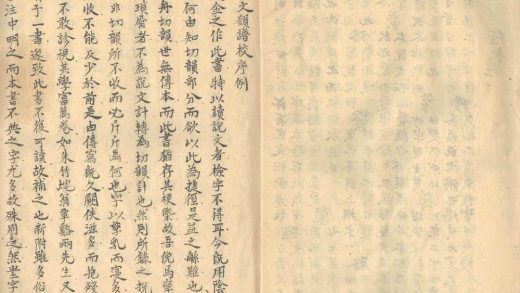 文韻譜校序例
金之作此書特以讀說文者檢字不得耳今既用陰
何由知切韻部分而欲以此為捷徑是益之難也
舟切韻世無傳本而此書猶存其梗槩故吾俛焉孳
瑣屑者不為說文計轉為切韻計也然則所錄之
非切韻所不收而必斤斤焉何也字以孳乳而寖多
收不能反少於前是由傳寫既久闕佚滋多而
不敢診視其學富萬卷如朱竹垞翁覃谿兩先生又
于一書遂致此書不復可讀故補之也新附雖多俗
注中明之而本書不典之字尤多故殊別之然坐字